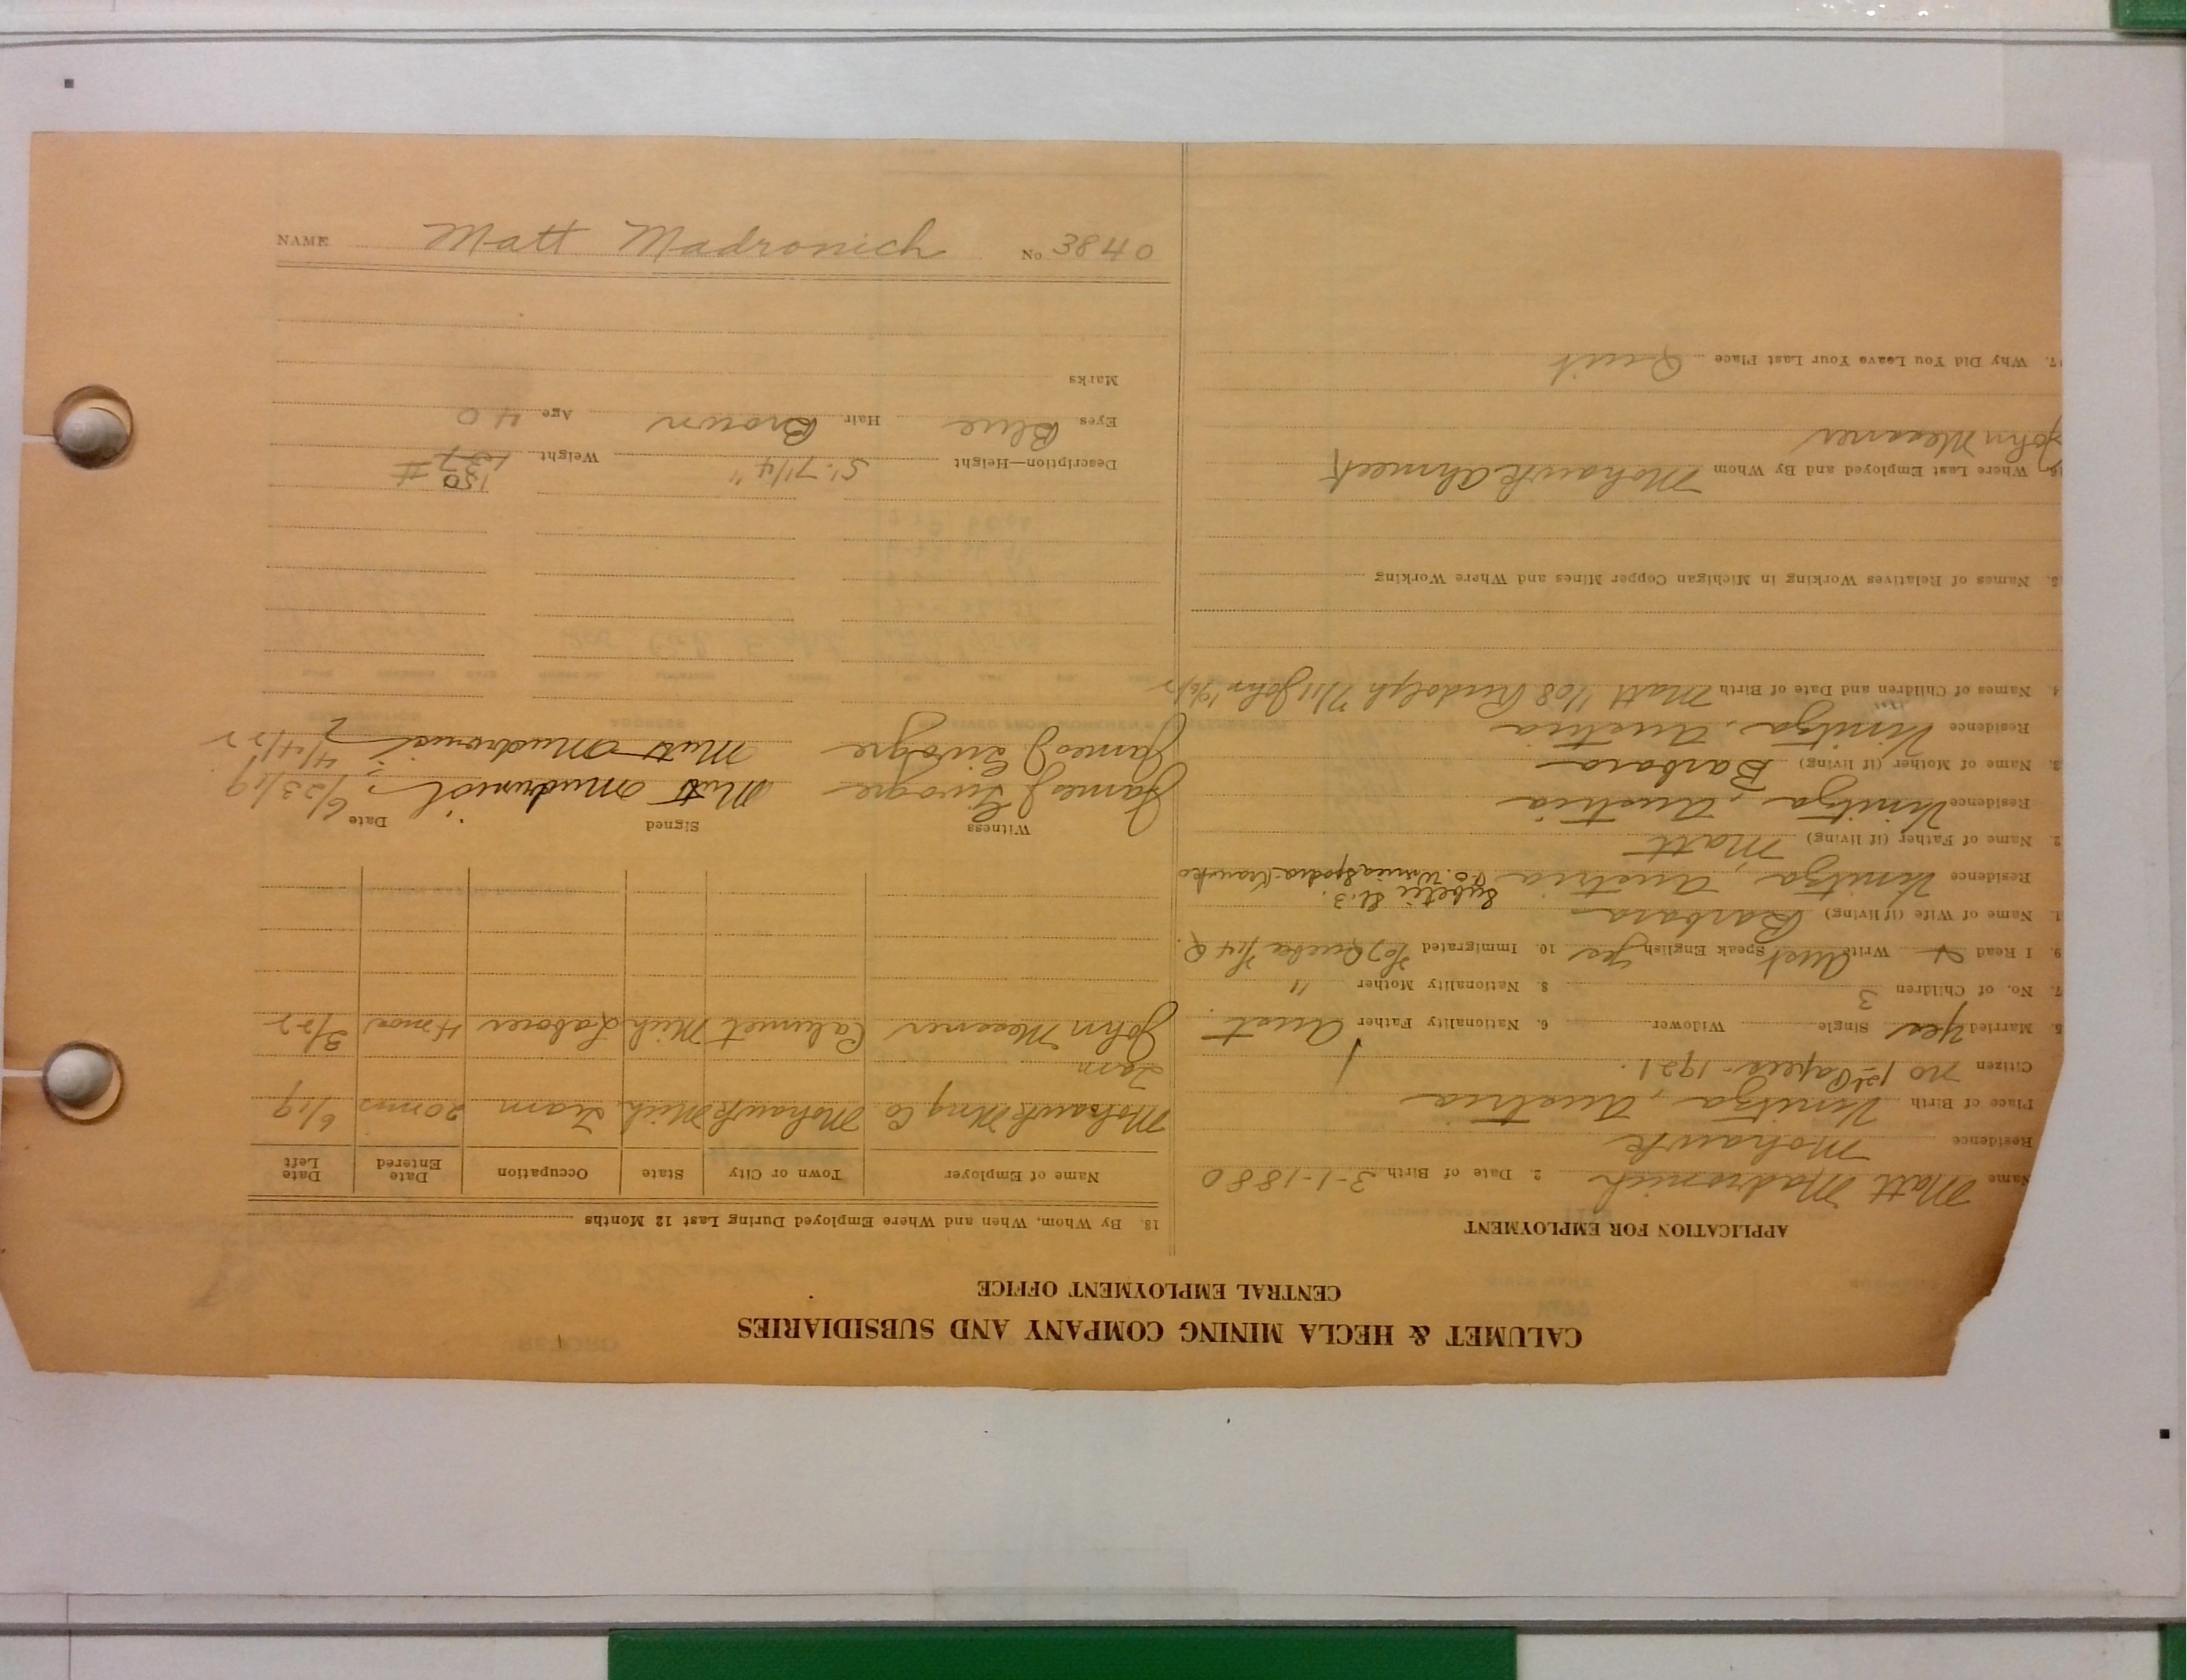 CALUMET & HECLA MINING COMPANY AND SUBSIDIARIES
CENTRAL EMPLOYMENT OFFICE
APPLICATION FOR EMPLOYMENT
Name Matt Madronich 2. Date of Birth 3-1-1880
Residence Mohawk
Place of Birth Vinitza, Austria
Citizen no 1st Papers - 1921.
5. Married yes Single Widower 6. Nationality Father Aust.
7. No. of Children 3 8. Nationality Mother "
9. I Read Write Aust Speak English yes 10. Immigrated Quebec
1. Name of Wife (if living) Barbara
Residence Vinitza, Austria
2. Name of Father (if living) Matt
Residence Vinitza, Austria
3. Name of Mother (if living) Barbara
Residence Vinitza, Austria
4. Names of Children and Date of Birth Matt 1/08 Rudolph 7/11 John
5. Names of Relatives Working in Michigan Copper Mines and Where Working
16. Where Last Employed and By Whom Mohawk Ahmeek
John Messner
17. Why Did You Leave Your Last Place Quit
18. By Whom, When and Where Employed During Last 12 Months
Name of Employer Town or City State Occupation Date Entered Date Left
Mohawk Mng Co Mohawk Mich. Tram 20 mos 6/19
Tram
John Messner Calumet Mich Laborer 4 mos 3/22
Witness Signed Date
James J 6/23/19
James J 4/4/22
Description—Height 5' 7 1/4" Weight 137 150 #
Eyes Blue Hair Brown Age 40
Marks
NAME Matt Madronich No 3840